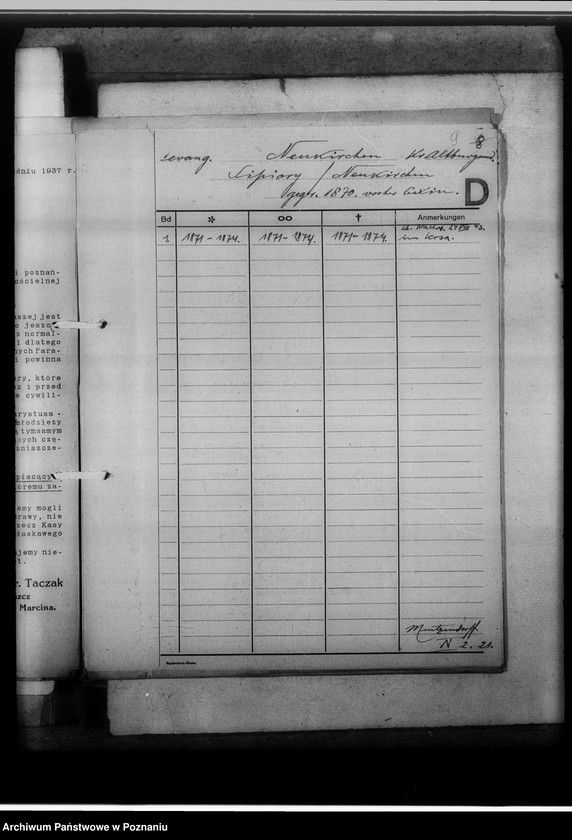 dniu 1937 r.
i poznań-
ościelnej
aszej jest
o jeszc
z normal-
i dlatego
nych Para-
i powinna
ry, które
z i przed
e cywili-
arystusa -
młodzieży
ą tymsamym
ących czę-
zniszcze-
płacący
óremu za-
emy mogli
rawy, nie
rzecz Kasy
łaskawego
ajemy nie-
t.
r. Taczak
szcz
Marcina.
9 8
evang. Neukirchen Kr. Altburgund.
Lipiory / Neukirchen
gegr. 1870. vorher Exin.
D
Bd * oo † Anmerkungen
1 1871-1874. 1871-1874. 1871-1874. im Krsa.
Mentzendorff
N 2. 21.
Archiwum Państwowe w Poznaniu